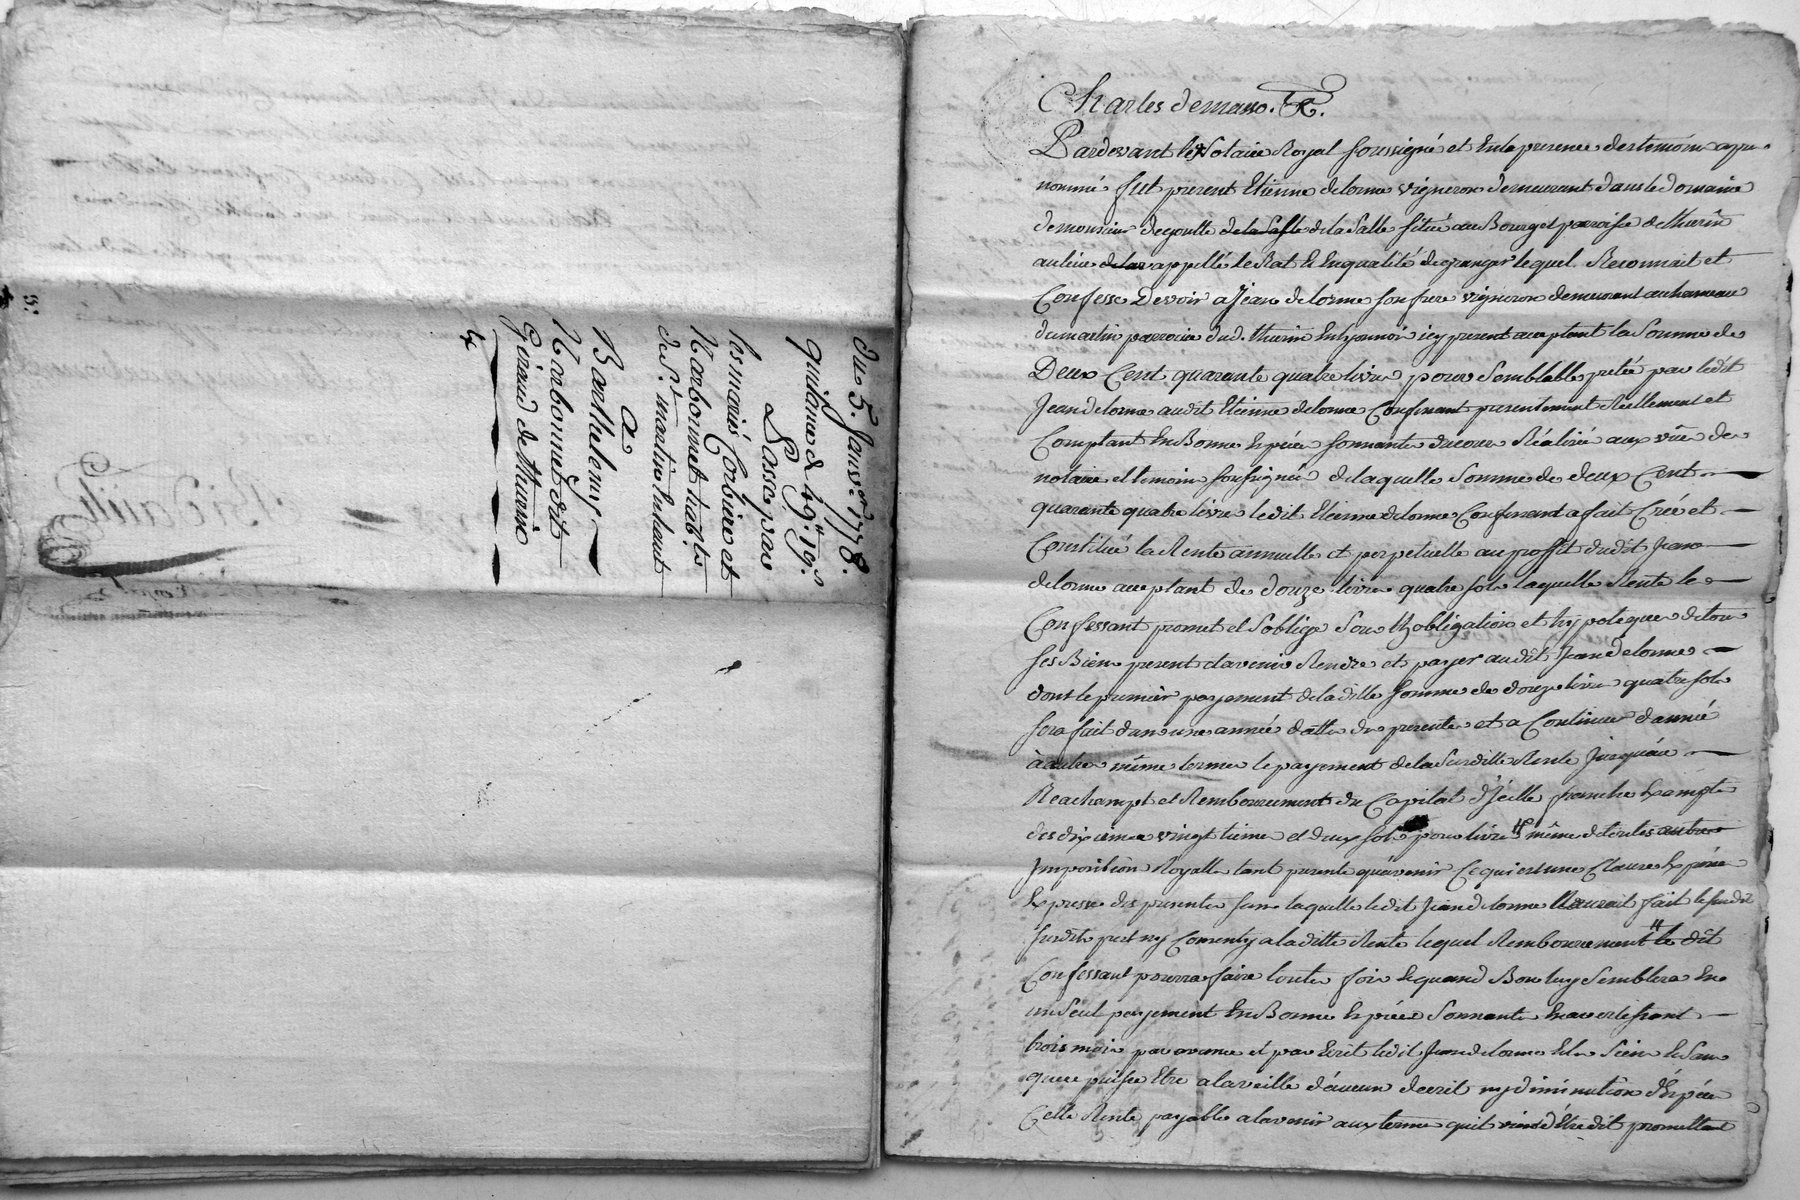 du 5. Janv.er 1778.
quittance de 49.tt 19.s
passé par
les mariés Corbière et
Narbonnet habit.ts
de S.t martin le haut
a
Barthelemy
Narbonnet dit
Géraud de Thurin
&
Charles demasso. &.
Pardevant le Notaire Royal soussigné et En la presence des temoins apres
nommés fut present Etienne delorme vigneron demeurant dans le domaine
de monsieur degoutte de la Salle situé au Bourg et paroisse de thurin
au lieu appellé le Rat Et En qualité de granger lequel Reconnait et
Confesse Devoir a Jean delorme son frere vigneron demeurant au hameau
du martin paroisse dud. thurin En lyonnois icy present acceptant la Somme de
Deux Cent quarante quatre livres pour Semblable pretée par ledit
Jean delorme audit Etienne delorme Confessant presentement Reellement et
Comptant En Bonnes Espèces Sonnantes du cours Réalisée aux vües des
notaire et temoins soussignés de laquelle Somme de deux Cent
quarante quatre livres ledit Etienne delorme Confessant a fait Créé et
Constitué la Rente annuelle et perpetuelle au proffit dudit Jean
delorme acceptant de douze livres quatre sols laquelle Rente le
Confessant promet et S'oblige Sous l'hobligation et hypoteque de tous
ses Biens present et avenir Rendre et payer audit Jean delorme
dont le premier payement de la ditte somme de douze livres quatre sols
sera fait dans une année datte des presentes et a Continuer d'année
à autre même terme le payement de la Susditte Rente Jusqu'au
Reachampt et Remboursement du Capital d'Jcelle franche Exempte
des dixieme vingtieme et deux sols pour livre même de toutes autres
Jmposition Royalle tant presente qu'avenir Ce qui est une Clause
Expresse des presentes sans laquelle ledit Jean delorme N'auroit fait le susdit
susdit prest ny Consenty a la ditte Rente lequel Remboursement le dit
Confessant pourra faire toutes fois Et quand Bon luy Semblera En
un Seul payement En Bonnes Espèces Sonnantes En avertissant
trois mois par avance et par Ecrit ledit Jean delorme Et les Siens Et Sans
que ce puisse Etre a la veille d'aucun decrit ny diminution d'Espèces
Celle Rente payable a l'avenir aux termes qu'il vient d'Etre dit promettant